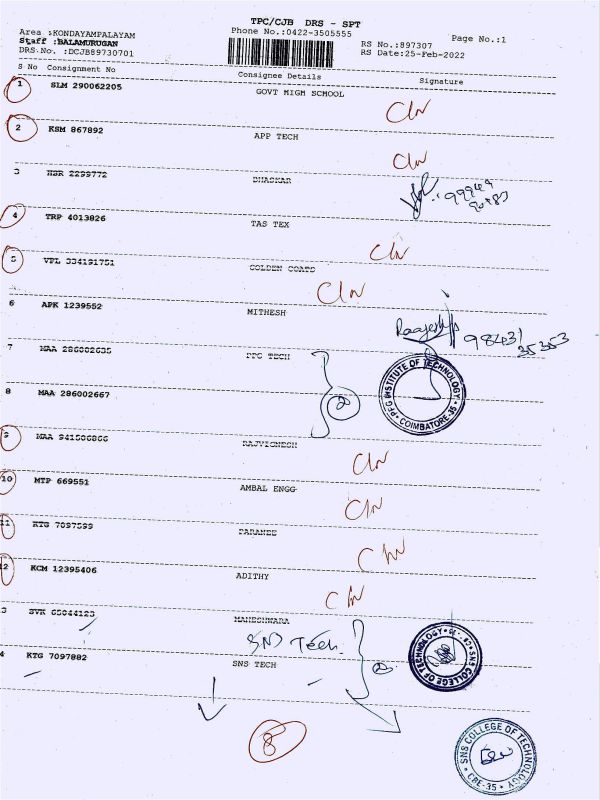 TPC/CJB DRS - SPT
Area :KONDAYAMPALAYAM
Phone No.:0422-3505555
Page No.:1
Staff :BALAMURUGAN
RS No.:897307
DRS.No. :DCJB89730701
RS Date:25-Feb-2022
S No Consignment No Consignee Details Signature
1 SLM 290062205 GOVT HIGH SCHOOL
2 KSM 867892 APP TECH
3 HSR 2299772 BHASKAR
4 TRP 4013826 TAS TEX
5 VPL 334191751 GOLDEN COATS
6 APK 1239552 MITHESH
98431
35353
7 MAA 286002635 PPG TECH
2
PPG INSTITUTE OF TECHNOLOGY
COIMBATORE-35
8 MAA 286002667
9 MAA 941506866 RAJVIGNESH
10 MTP 669551 AMBAL ENGG
11 KTG 7097599
12 KCM 12395406 ADITHY
3 SVK 65044123 MAHESHWARA
SNS Tech
4 KTG 7097882 SNS TECH
2
SNS COLLEGE OF TECHNOLOGY
8
SNS COLLEGE OF TECHNOLOGY
CBE-35